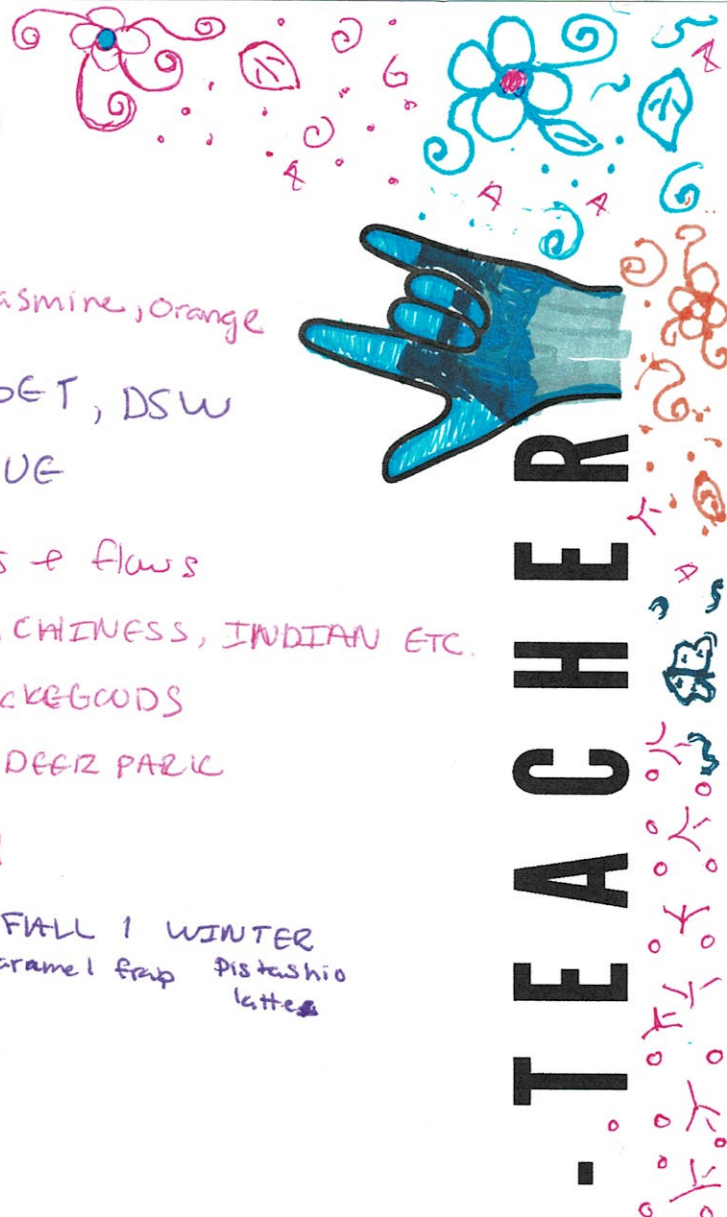 asmine, orange
DET, DSW
UE
s & flaws
, CHINESS, INDIAN ETC.
CKEGOODS
DEER PARK
FALL 1 WINTER
aramel frap Pistashio
latte
- TEACHER